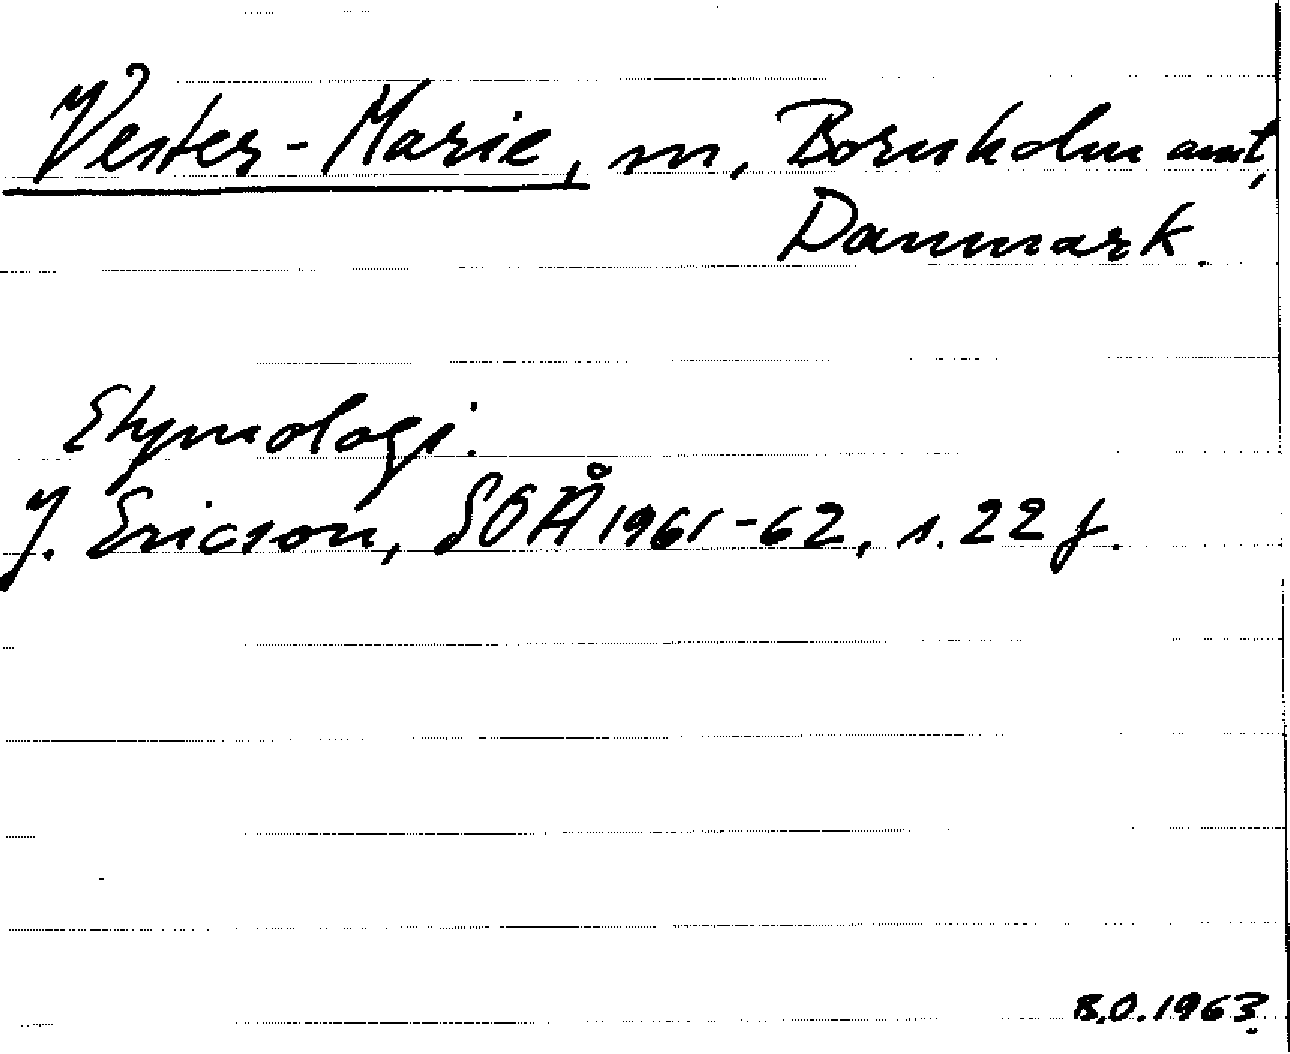 Vester-Marie, sn, Bornholm amt,
Danmark.
Etymologi.
J. Ericson, SOÅ 1961-62, s. 22 f.
B.O. 1963.